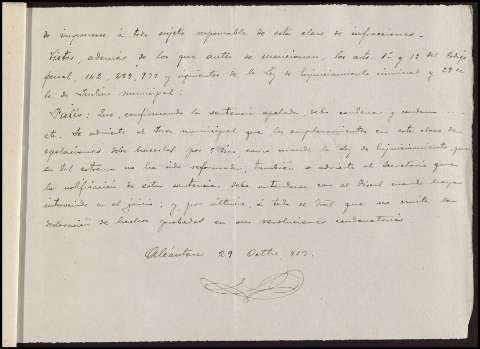 de imponerse á todo sujeto responsable de esta clase de infracciones.
Vistos, además de los que antes se mencionan, los arts. 1º y 12 del Código
penal, 142, 239, 977 y siguientes de la Ley de Enjuiciamiento criminal y 29 de
la de Justicia municipal:
Fallo: Que, confirmando la sentencia apelada, debo condenar y condeno ....
etc. Se advierte al Juez municipal que los emplazamientos en esta clase de
apelaciones debe hacerlos por cinco como manda la Ley de Enjuiciamiento, que
en tal extremo no ha sido reformada; también se advierte al Secretario que
la notificación de estas sentencias debe entenderse con el Fiscal cuando haya
intervenido en el juicio; y por último, á todo el Tribunal que no omita la
declaración de hechos probados en sus resoluciones condenatorias
Alcántara 29 Octbre.